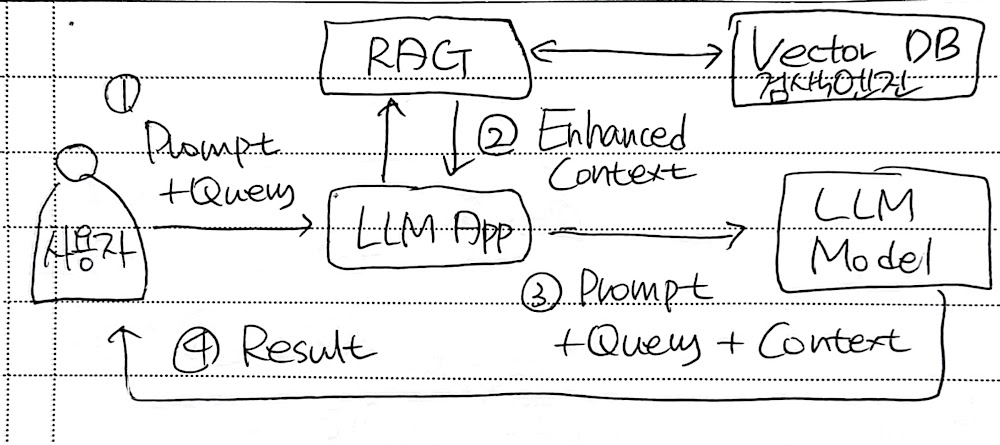 RAG
Vector DB
검색엔진
①
Prompt
+Query
② Enhanced
Context
사용자
LLM App
LLM
Model
③ Prompt
+Query + Context
④ Result